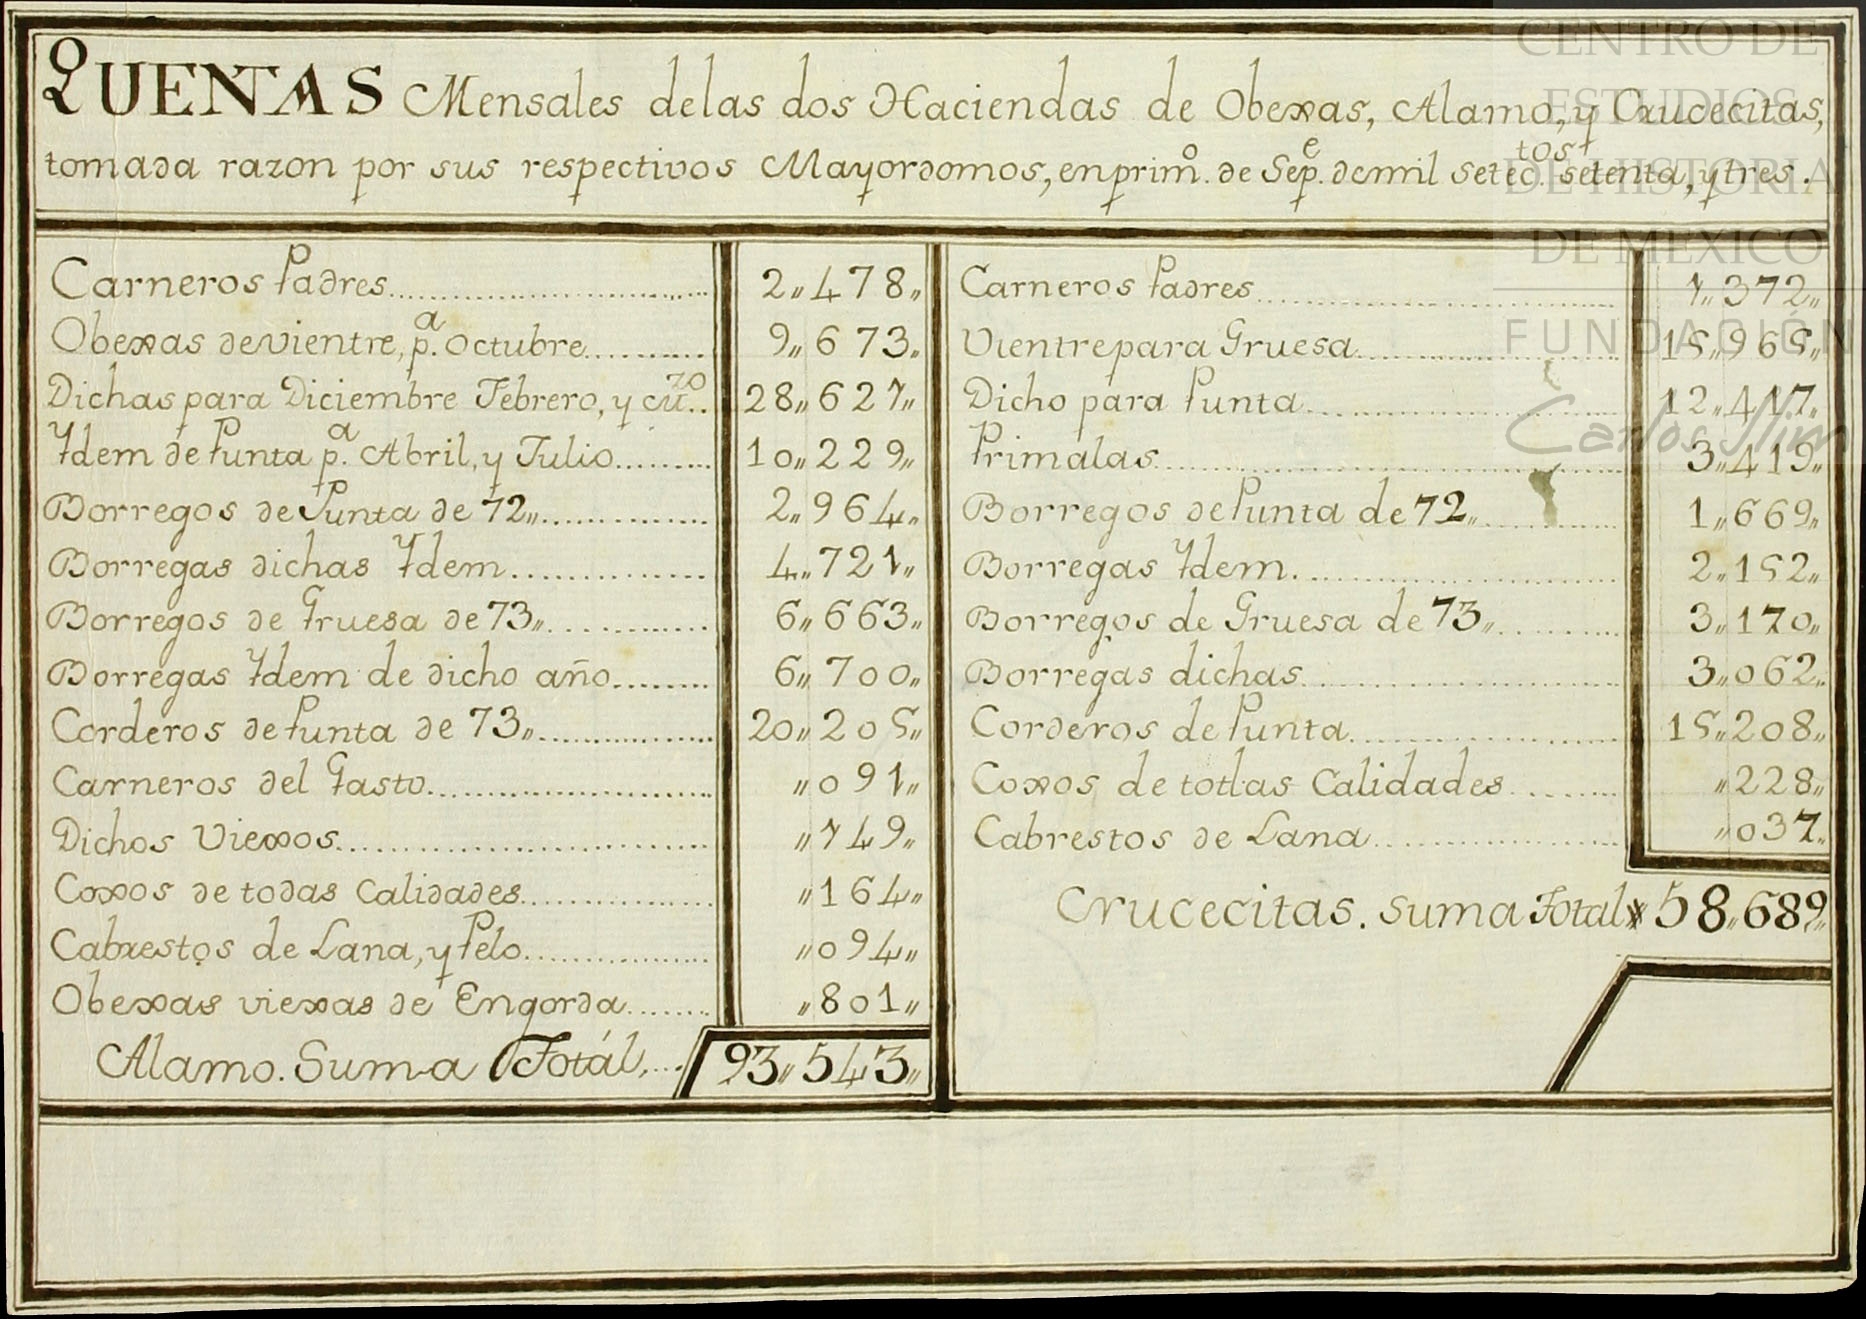 QUENTAS Mensales delas dos Haciendas de Obexas, Alamo, y Crucecitas,
tomada razon por sus respectivos Mayordomos, en prim.o de Sep.e de mil setec.tos setenta, y tres.
Carneros Padres 2,,478,,
Obexas de vientre, p.a Octubre 9,,673,,
Dichas para Diciembre Febrero, y 28,,621,,
Ydem de Punta p.a Abril, y Julio 10,,229,,
Borregos de Punta de 72,, 2,,964,,
Borregas dichas Ydem 4,,721,,
Borregos de Gruesa de 73,, 6,,663,,
Borregas Ydem de dicho año 6,,700,,
Corderos de Punta de 73,, 20,,205,,
Carneros del Gasto ,,091,,
Dichos Viexos ,,149,,
Coxos de todas Calidades ,,164,,
Cabrestos de Lana, y Pelo ,,094,,
Obexas viexas de Engorda ,,801,,
Alamo. Suma Totál 93,,543,,
Carneros Padres 1,,372,,
Vientre para Gruesa 15,,965,,
Dicho para Punta 12,,417,,
Primalas 3,,419,,
Borregos de Punta de 72,, 1,,669,,
Borregas Ydem 2,,152,,
Borregos de Gruesa de 73,, 3,,170,,
Borregas dichas 3,,062,,
Corderos de Punta 15,,208,,
Coxos de totlas Calidades ,,228,,
Cabrestos de Lana ,,037,,
Crucecitas. Suma Total 58,,689,,
CENTRO DE
ESTUDIOS
DE HISTORIA
DE MEXICO
FUNDACIÓN
Carlos Slim